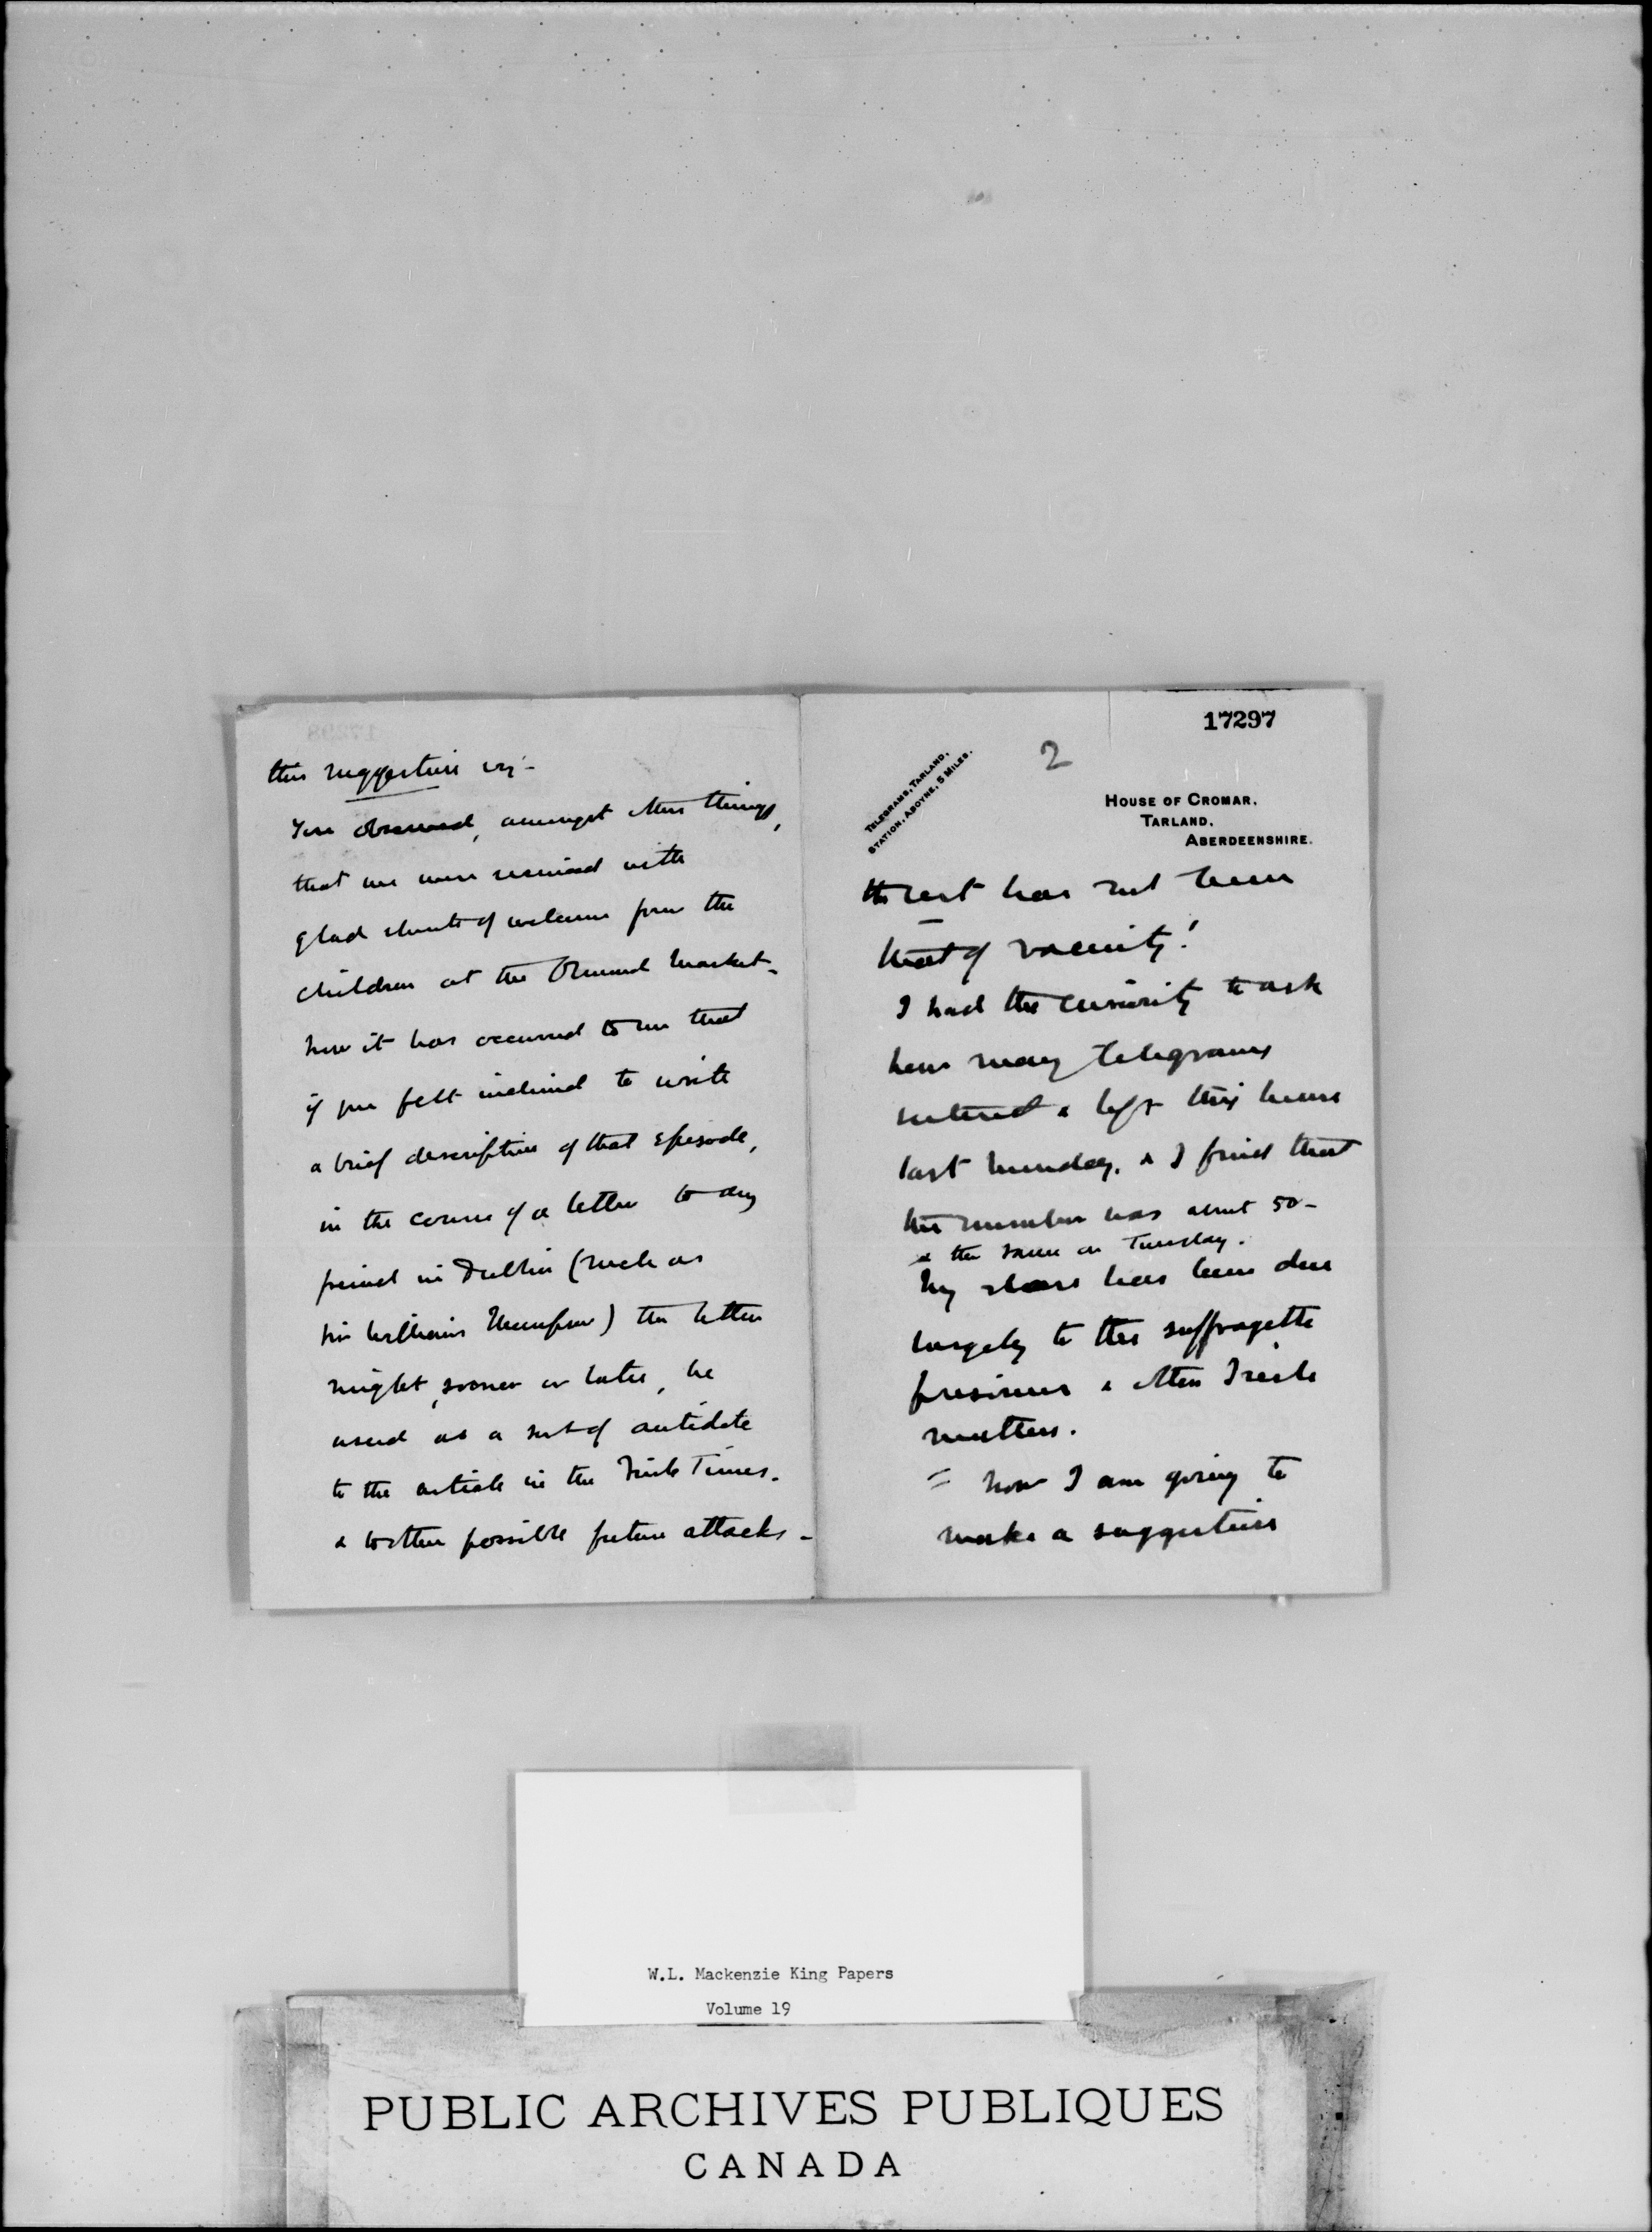 this suggestion viz -
You observed, amongst other things,
that we were received with
glad shouts of welcome from the
children at the Ormond Market -
now it has occurred to me that
if you felt inclined to write
a brief description of that episode,
in the course of a letter to any
friend in Dublin (such as
Sir William Thompson) the letter
might, sooner or later, be
used as a sort of antidote
to the article in the Irish Times.
& to other possible future attacks -
17297
2
TELEGRAMS, TARLAND,
STATION, ABOYNE, 5 MILES.
HOUSE OF CROMAR,
TARLAND,
ABERDEENSHIRE.
the rest has not been
that of vacuity!
I had the curiosity to ask
how many telegrams
entered & left this house
last Monday, & I find that
the number was about 50 -
& the same on Tuesday.
My share has been due
largely to the suffragette
prisoners & other Irish
matters.
= Now I am going to
make a suggestion
W.L. Mackenzie King Papers
Volume 19
PUBLIC ARCHIVES PUBLIQUES
CANADA